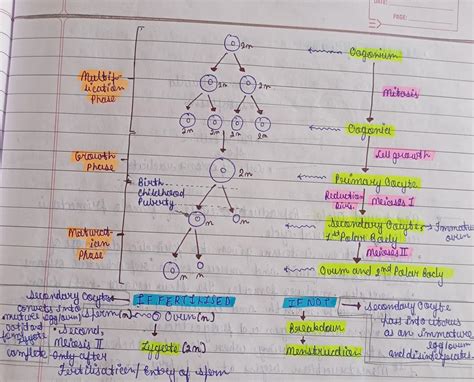 DATE:
PAGE:
2n
Oogonium
Multipl-
ication
Phase
2n
2n
Mitosis
2n 2n 2n 2n
Oogonia
Growth
Phase
Cell growth
2n
Primary Oocyte
Birth
Childhood
Puberty
Reduction
Divi.
Meiosis I
n
n
Secondary Oocyte,
1st Polar Body
Immature
ovum
Maturat-
ion
Phase
Meiosis II
n
n
Ovum and 2nd Polar Body
Secondary Oocyte
converts into
mature egg/ovum
zygote
IF FERTILISED
Sperm(n) Ovum(n)
Zygote (2n)
Second,
meiosis II
complete only after
Fertilisation/Entry of sperm
IF NOT
Breakdown
Menstruation
Secondary Oocyte
pass into uterus
as an immature
egg/ovum
and disintegrates